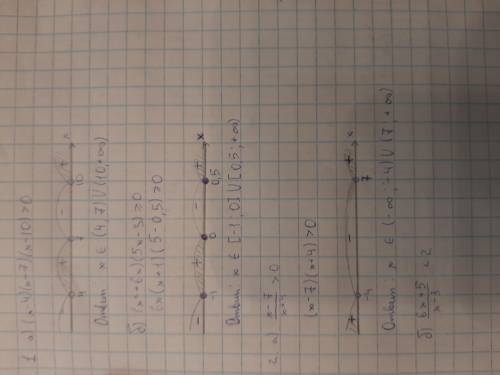 1. а) (x-4)(x-7)(x-10)>0
4 7 10 x
Ответ: x ∈ (4, 7) ∪ (10, +∞)
б) (x²+6x)(5x-3)≥0
6x(x+1)(5-0,5)≥0
-1 0 0,5 x
Ответ: x ∈ [-1, 0] ∪ [0,5; +∞)
2 а) x-7/x+4 > 0
(x-7)(x+4)>0
+ - +
-4 7 x
Ответ: x ∈ (-∞; -4) ∪ (7, +∞)
б) 6x+5/x+3 < 2